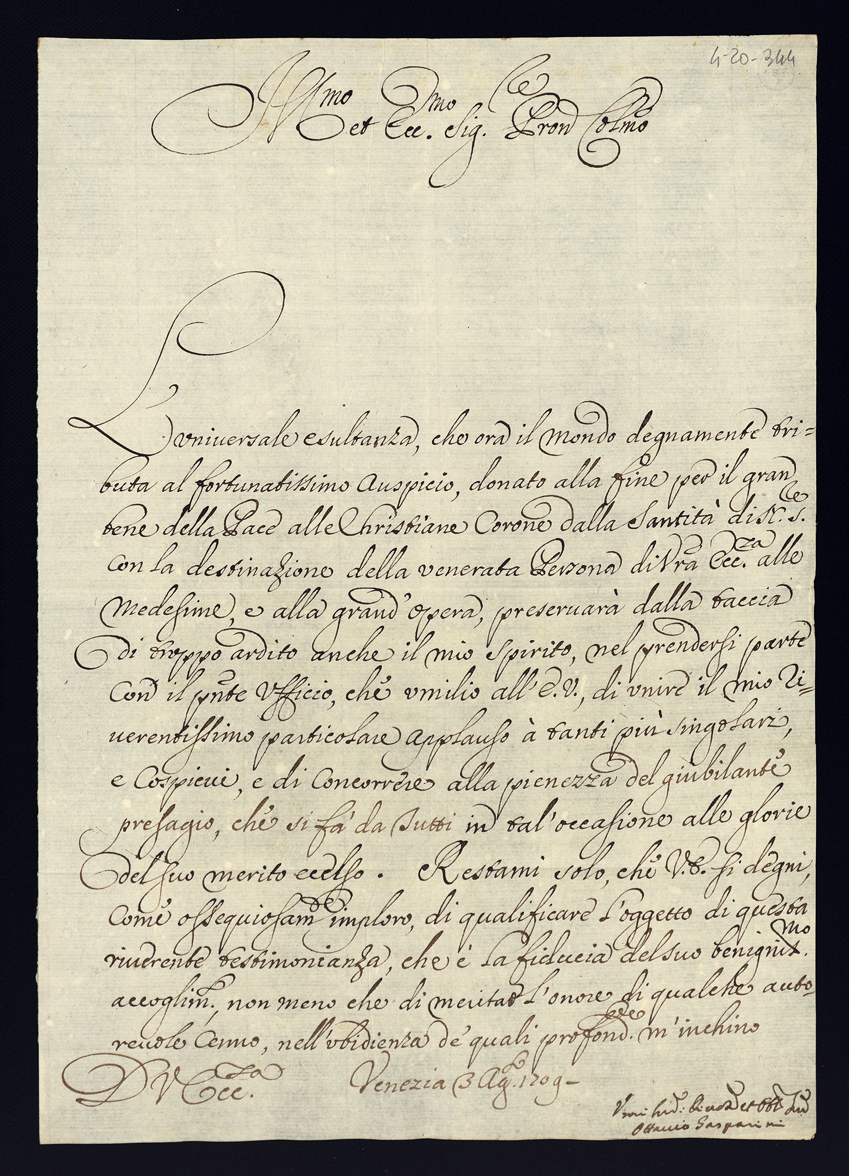 4-20-344
Ill.mo et Ecc.mo Sig.re Pron Colmo
L'vniuersale esultanza, che ora il mondo degnamente tri=
buta al fortunatissimo Auspicio, donato alla fine per il gran
bene della Pace alle Christiane Corone dalla Santità di N.S.re
con la destinazione della venerata Persona di Vra Ecc.za alle
Medesime, e alla grand'opera, preseruarà dalla taccia
di troppo ardito anche il mio spirito, nel prendersi parte
con il pnte Vfficio, che vmilio all'E.V., di vnire il mio Ri=
uerentissimo particolare Applauso à tanti più singolari,
e Cospicui, e di Concorrere alla pienezza del giubilante
presagio, che si fà da Tutti in tal'occasione alle glorie
del suo merito eccelso. Restami solo, che V.E. si degni,
come ossequiosam.te imploro, di qualificare l'oggetto di questa
riuerente testimonianza, che è la fiducia del suo benigniss.mo
accoglim.to, non meno che di meritar l'onore di qualche auto=
reuole Cenno, nell'vbidienza de quali profond.te m'inchino
D V Ecc.za Venezia 3 Ag.to 1709-
Ottauio Gasparini